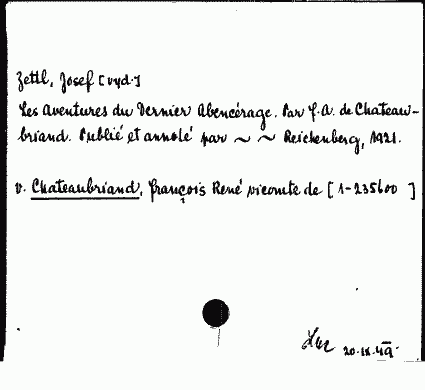 Zettl, Josef [vyd.]
Les Aventures du Dernier Abencérage. Par F. A. de Chateau-
briand. Publié et annoté par ~ ~ Reichenberg, 1921.
v. Chateaubriand, François René vicomte de [1-235600]